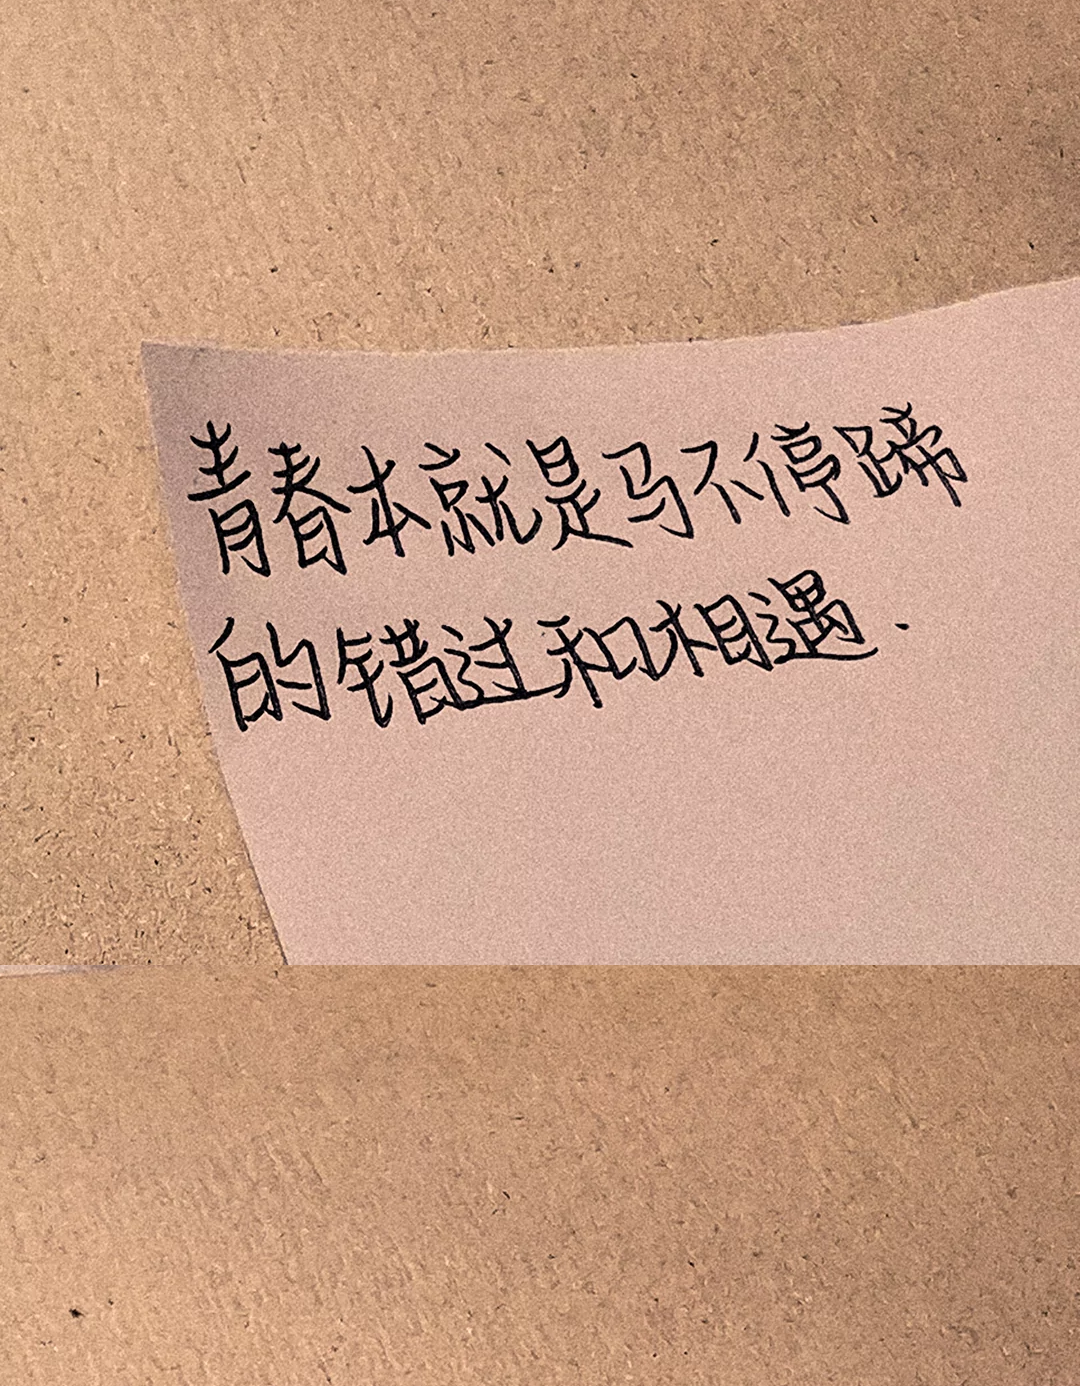 青春本就是马不停蹄
的错过和相遇.